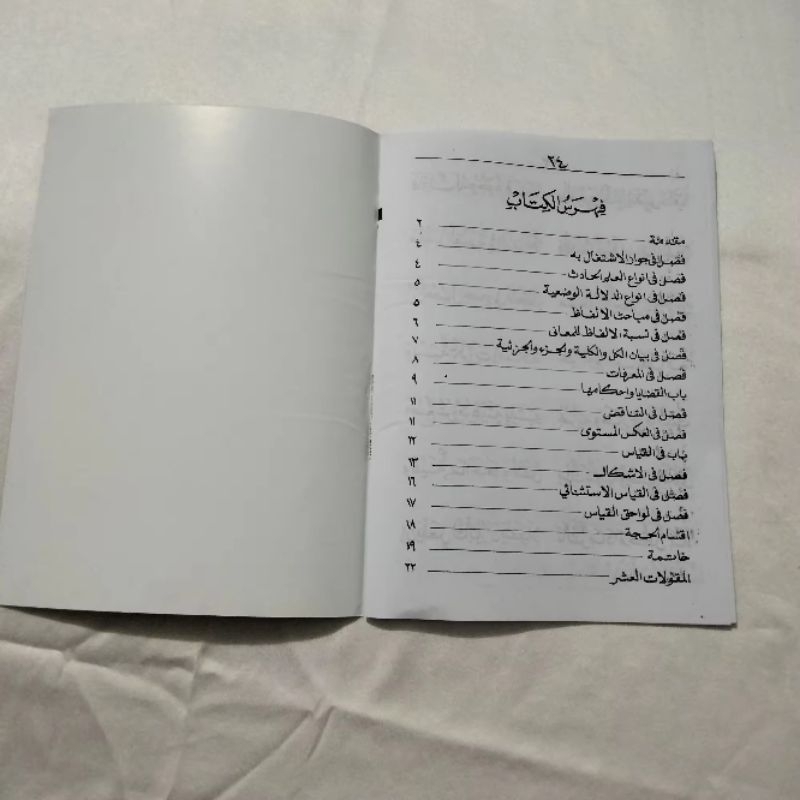 ٢٤
فهرس الكتاب
مقدمة ٢
فصل في جواز الاشتغال به ٤
فصل في انواع العلم الحادث ٤
فصل في انواع الدلالة الوضعية ٥
فصل في مباحث الالفاظ ٥
فصل في نسبة الالفاظ للمعاني ٦
فصل في بيان الكل والكلية والجزء والجزئية ٧
فصل في المعرفات ٨
باب القضايا واحكامها ٩
فصل في التناقض ١١
فصل في العكس المستوى ١١
باب في القياس ١٢
فصل في الاشكال ١٣
فصل في القياس الاستثنائي ١٦
فصل في لواحق القياس ١٧
اقسام الحجة ١٨
خاتمة ١٩
المقولات العشر ٢٢